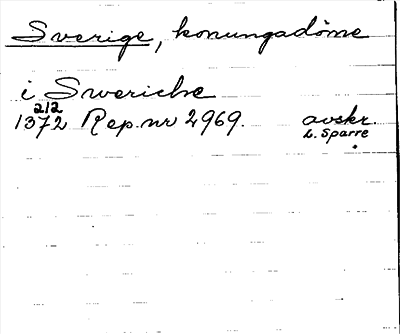 Sverige, konungadöme
i Sweriche
1372 2/2 Rep. nr 2969. avskr.
L. Sparre